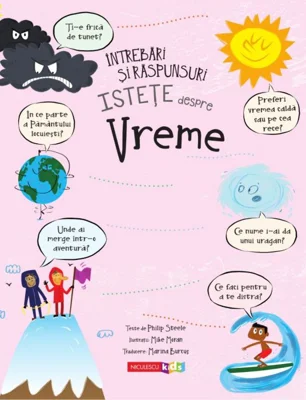 Ți-e frică
de tunet?
ÎNTREBĂRI
ȘI RĂSPUNSURI
ISTEȚE despre
Vreme
Preferi
vremea caldă
sau pe cea
rece?
În ce parte
a Pământului
locuiești?
Ce nume i-ai da
unui uragan?
Unde ai
merge într-o
aventură?
Ce faci pentru
a te distra?
Texte de Philip Steele
Ilustrații: Mike Moran
Traducere: Marina Bursuc
NICULESCU kids